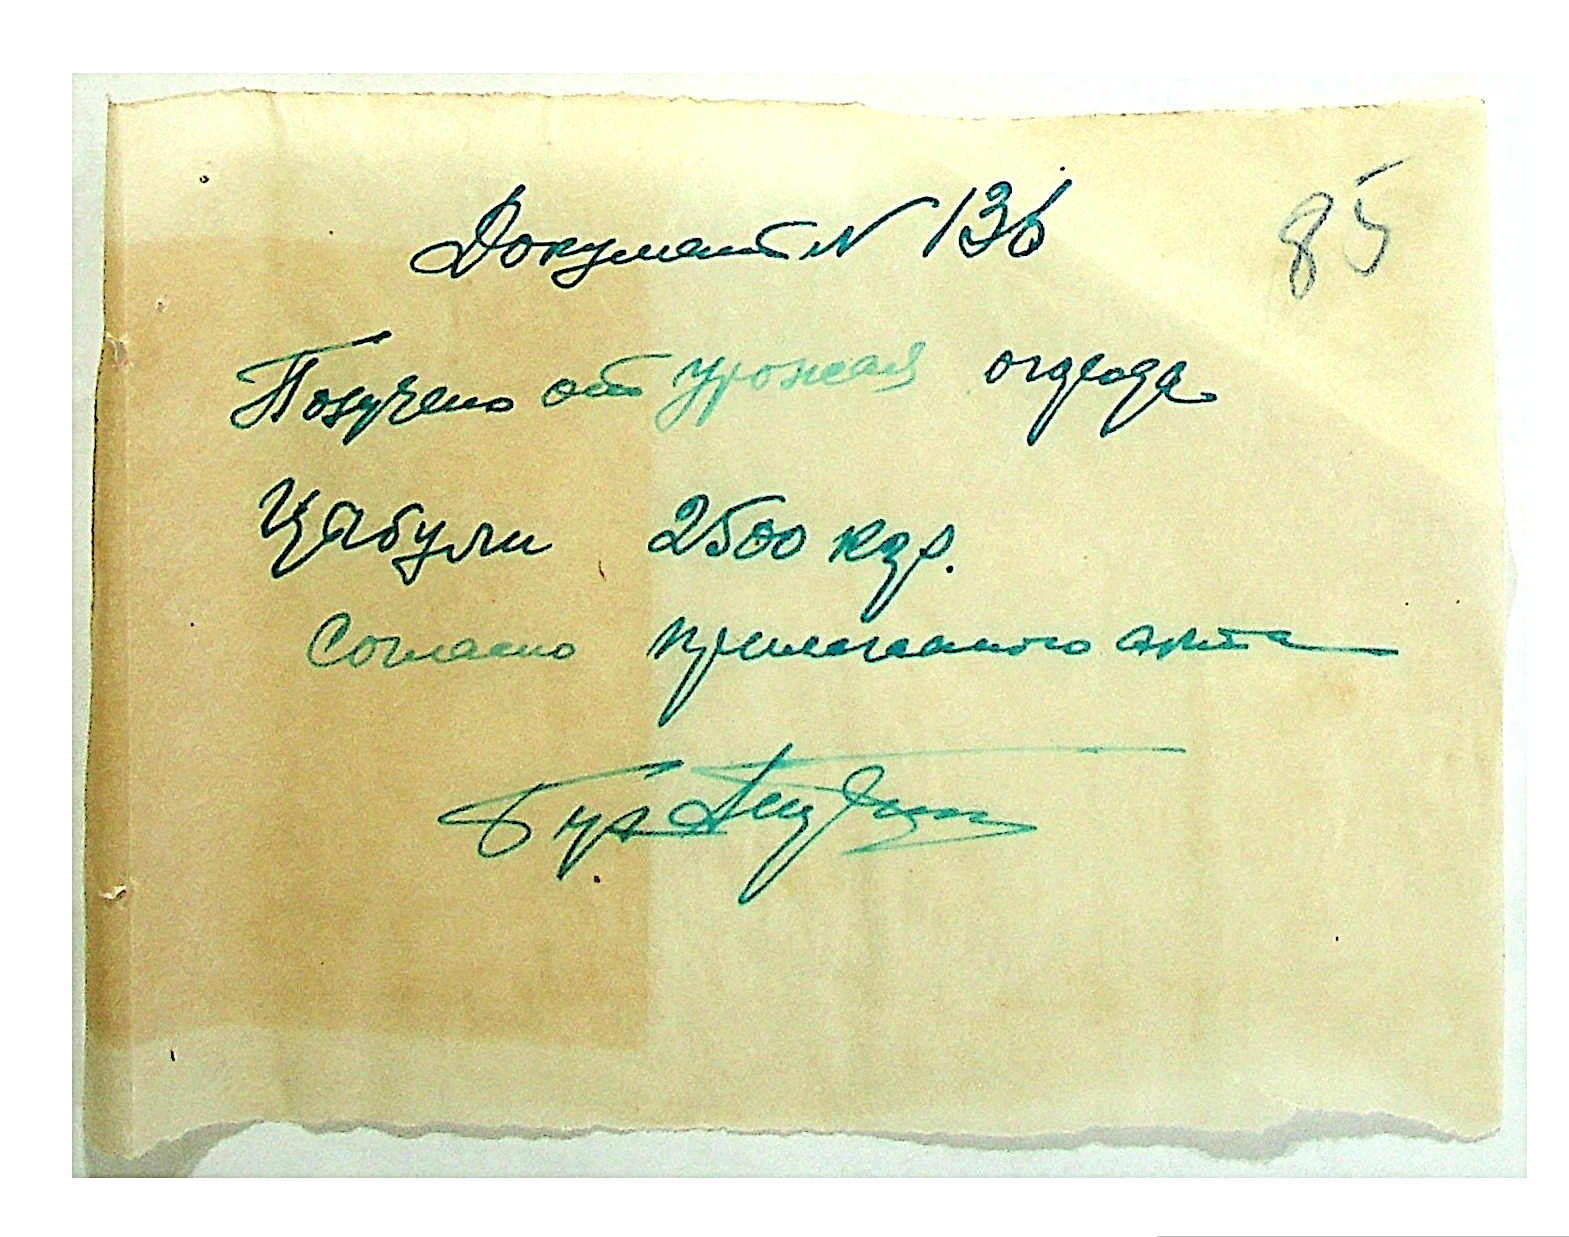 Документ N 136
85
Получено от урожая огорода
Цыбули 2500 кгр.
Согласно прилагаемого акта
Бух